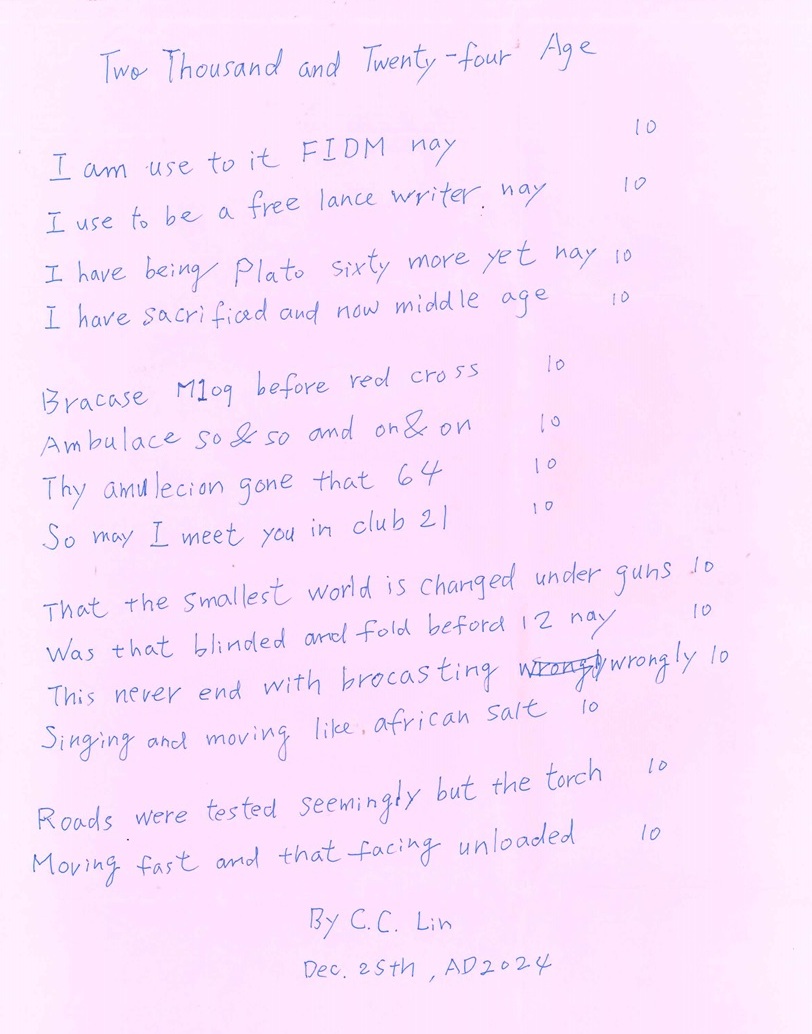 Two Thousand and Twenty-four Age
I am use to it FIDM nay 10
I use to be a free lance writer. nay 10
I have being Plato sixty more yet nay 10
I have sacrificed and now middle age 10
Bracase M109 before red cross 10
Ambulace so & so and on & on 10
Thy amulecion gone that 64 10
So may I meet you in club 21 10
That the smallest world is changed under guns 10
Was that blinded and fold beford 12 nay 10
This never end with brocasting wrongly wrongly 10
Singing and moving like african salt 10
Roads were tested seemingly but the torch 10
Moving fast and that facing unloaded 10
By C.C. Lin
Dec. 25th, AD2024